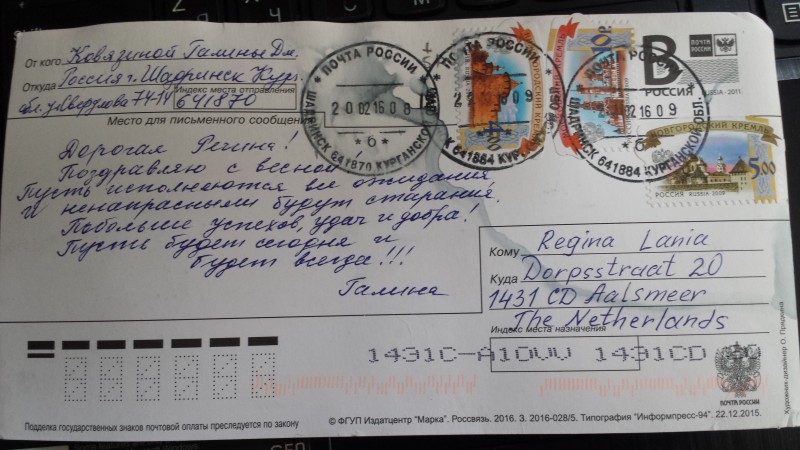 От кого Ковязиной Галины Дм.
Откуда Россия г. Шадринск Кург.
Индекс места отправления
обл. ул. Свердлова 74-14 641870
Место для письменного сообщения
Дорогая Регина!
Поздравляю с весной
Пусть исполняются все ожидания,
и ненапрасными будут старания.
Побольше успехов, удач и добра!
Пусть будет сегодня и
будет всегда!!!
Галина
ПОЧТА РОССИИ
20 02 16 0
ШАДРИНСК 641870 КУРГАНСКОЙ
б
ПОЧТА РОССИИ
22 16 09
К 641884 КУРГ
б
РОССИИ
02 16 09
ШАДРИНСК 641884 КУРГАНСКОЙ ОБЛ.
б
10 Р.
4.00
B
РОССИЯ
ПОЧТА РОССИИ
RUSSIA · 2011
НОВГОРОДСКИЙ КРЕМЛЬ
5.00
РОССИЯ RUSSIA 2009
Кому Regina Lania
Куда Dorpsstraat 20
1431 CD Aalsmeer
The Netherlands
Индекс места назначения
1431C-A10VV 1431CD
ПОЧТА РОССИИ
Художник-дизайнер О. Прянична
Подделка государственных знаков почтовой оплаты преследуется по закону
© ФГУП Издатцентр "Марка". Россвязь. 2016. З. 2016-028/5. Типография "Информпресс-94". 22.12.2015.